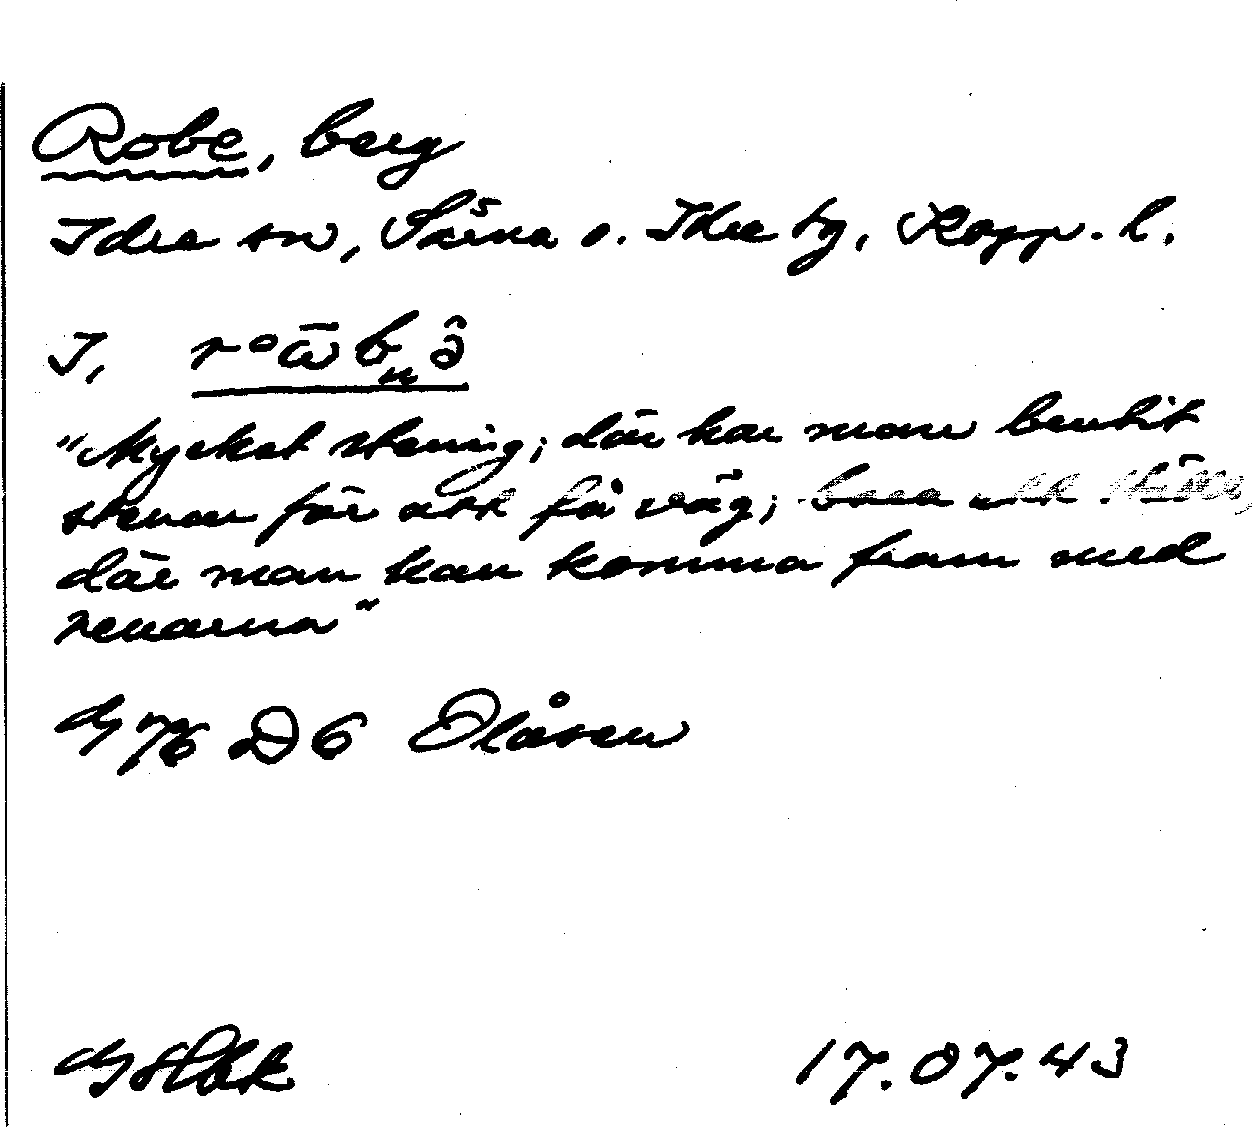 Robe, berg
Idre sn, Särna o. Idre tg, Kopp. l.
I,
"Mycket stenig; där har man brutit
stenar för att få väg; bara ett ställe,
där man kan komma fram med
renarna"
D6 Olåsen
17.07.43